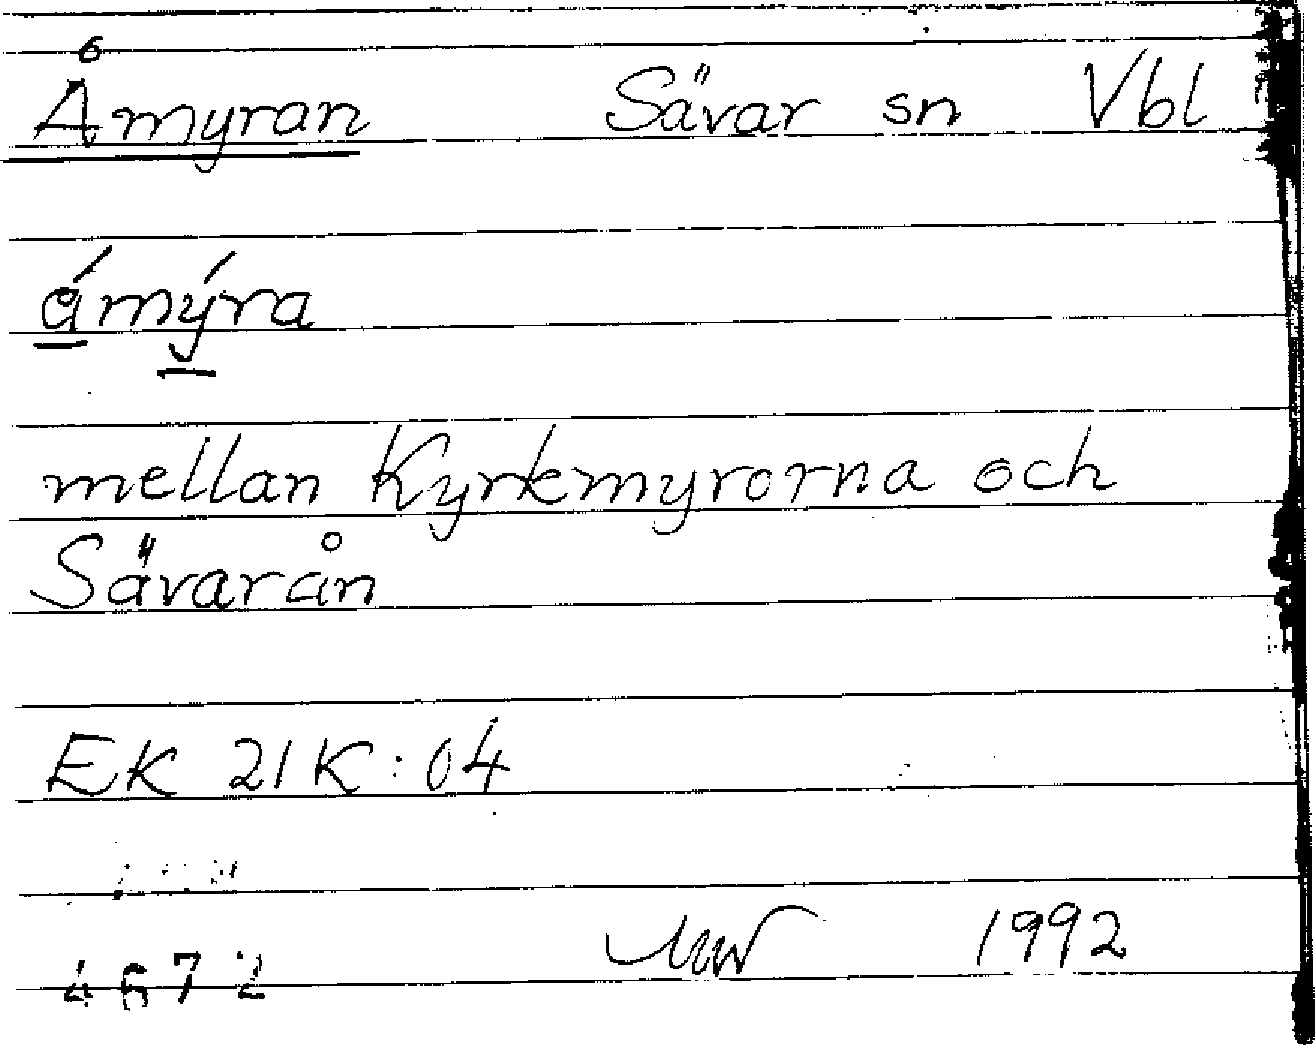 Åmyran Sävar sn Vbl
ǻmýra
mellan Kyrkmyrorna och
Sävarån
EK 21K:04
1992
4672